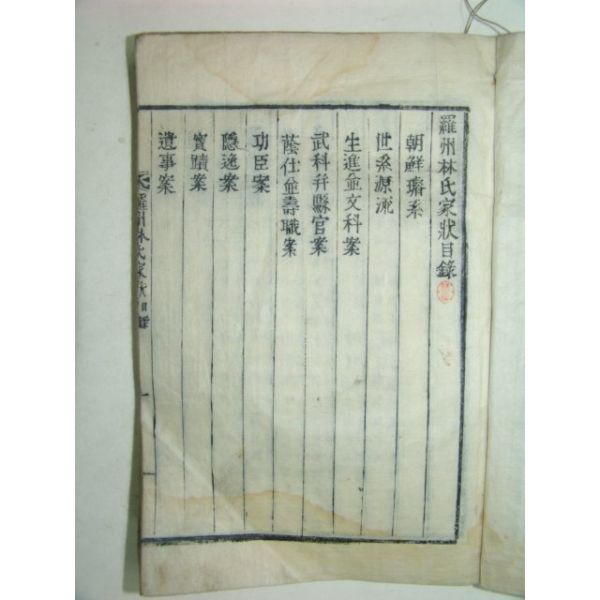 羅州林氏家狀目錄
朝鮮璿系
世系源流
生進並文科案
武科并縣官案
蔭仕並壽職案
功臣案
隱逸案
實蹟案
遺事案
羅州林氏家狀目錄
一